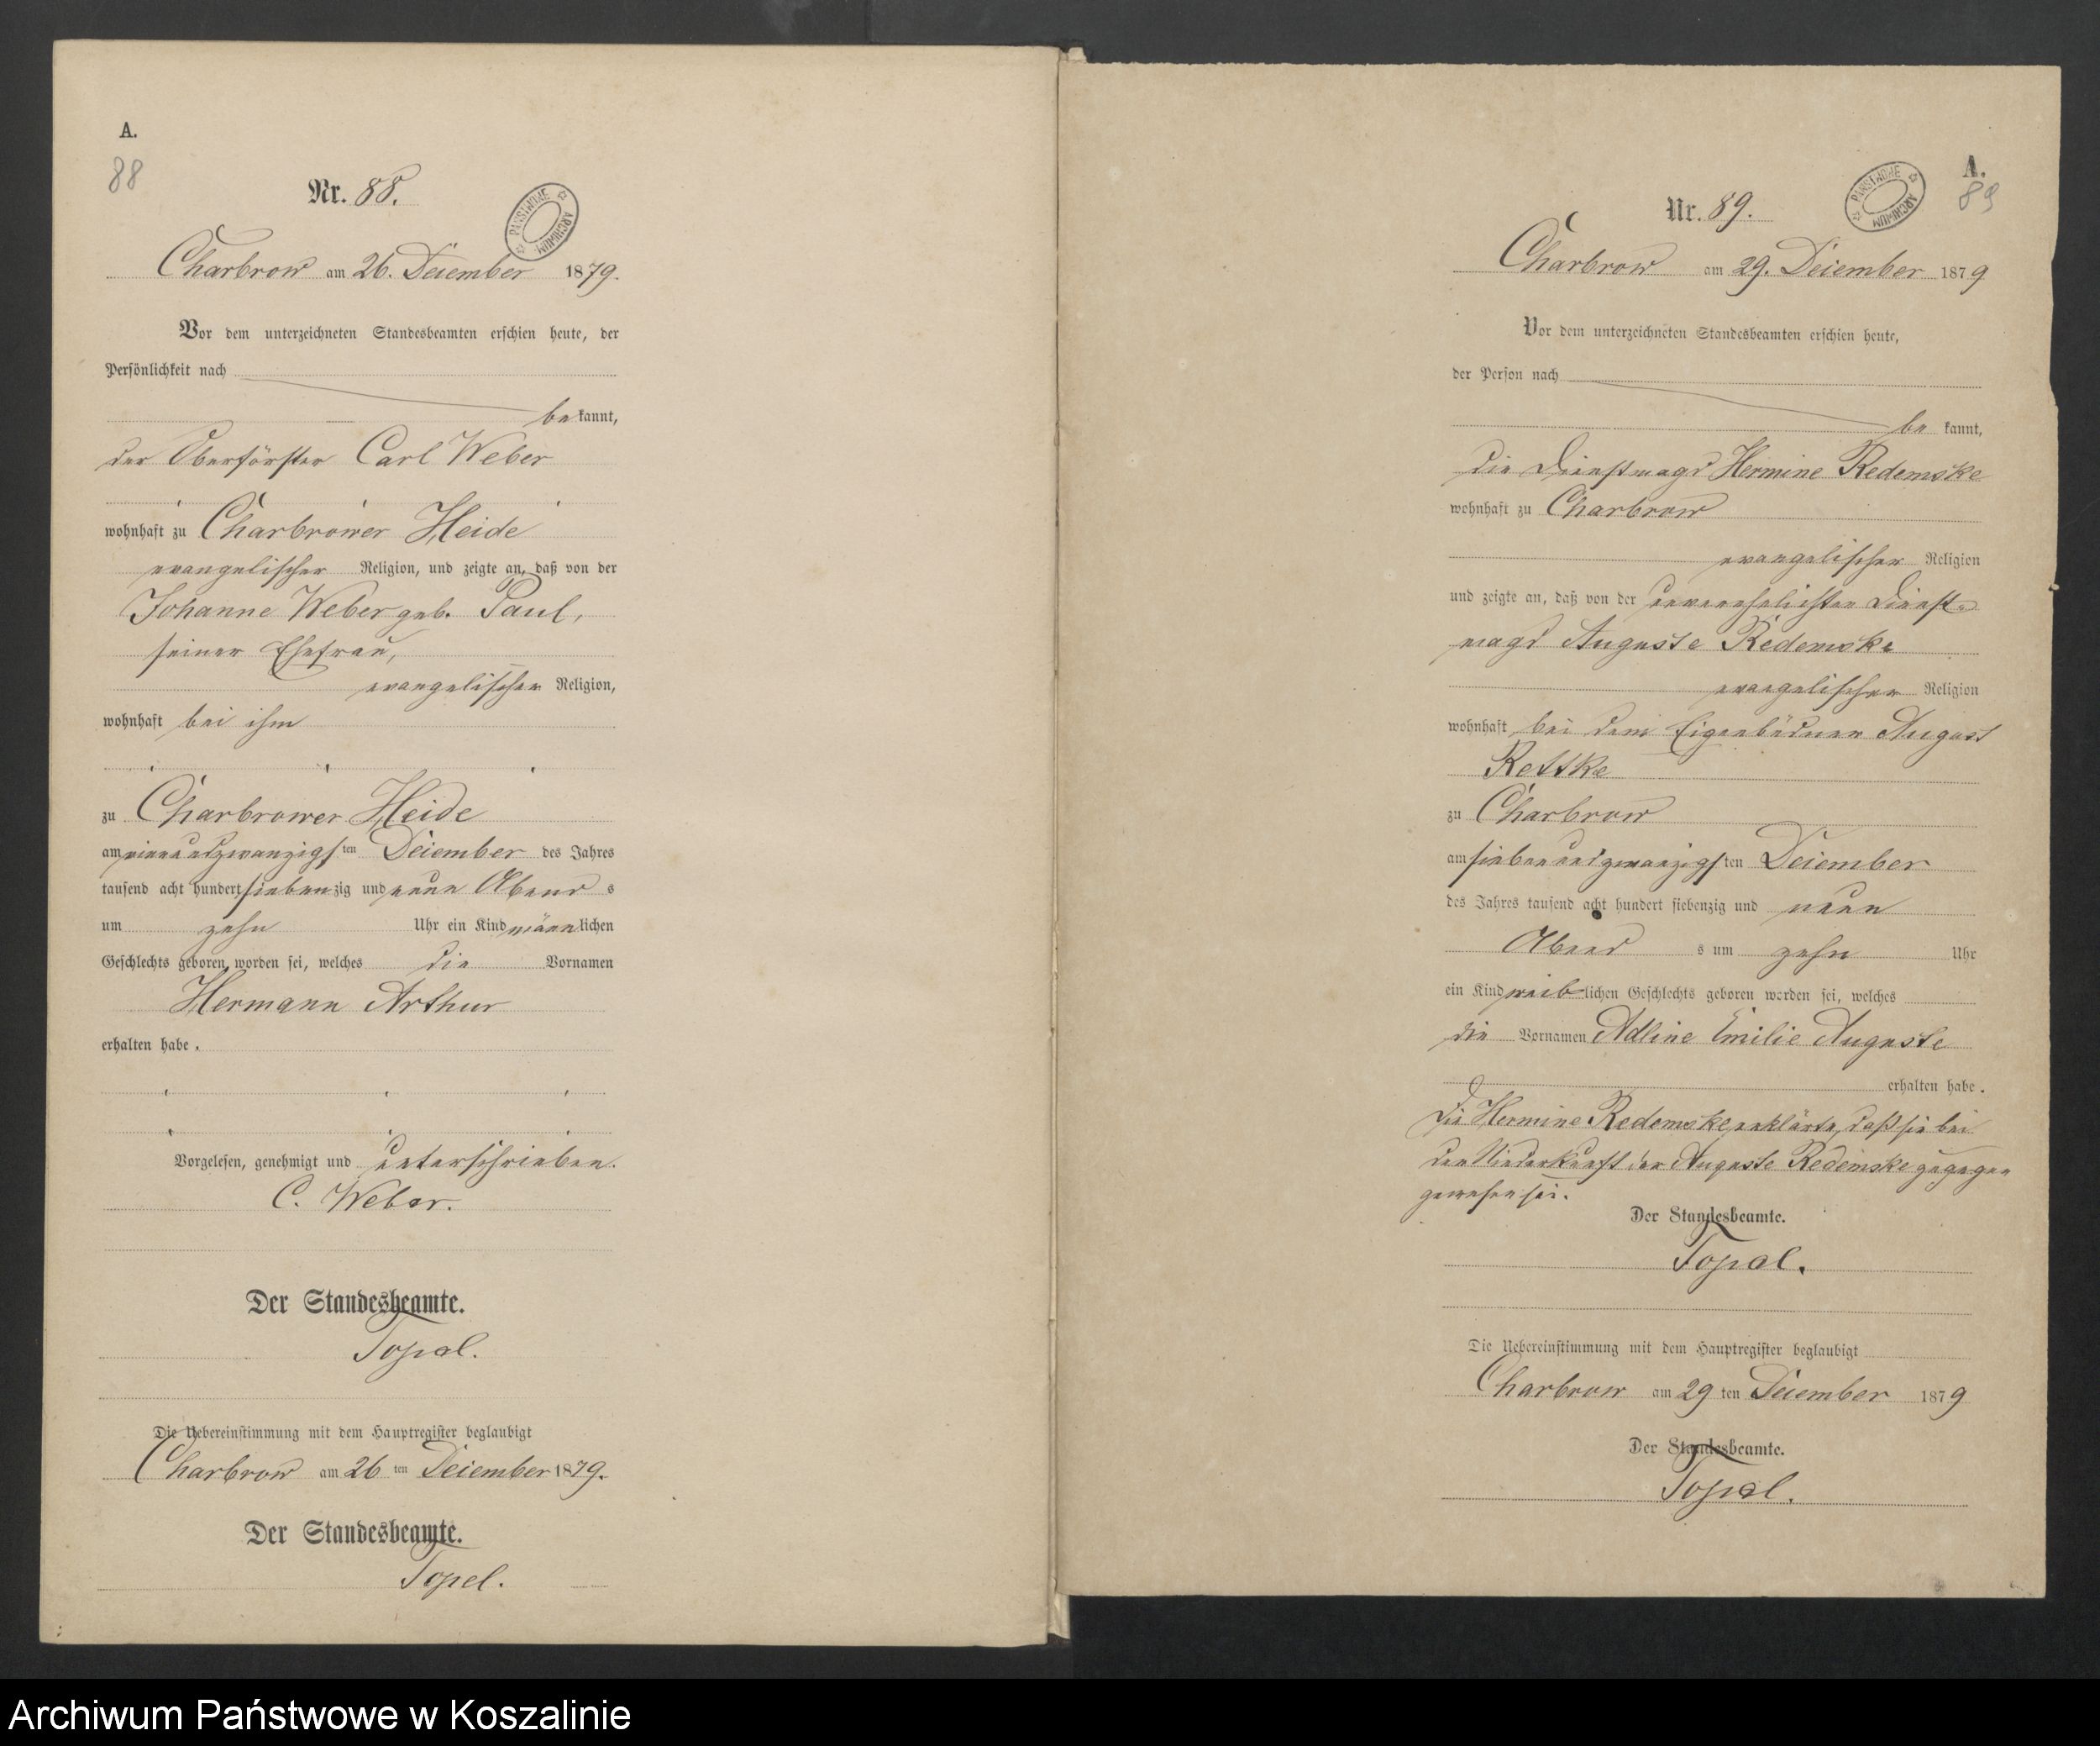 A.
88
Nr. 88.
PAŃSTWOWE ARCHIWUM
Charbrow am 26. Dezember 1879.
Vor dem unterzeichneten Standesbeamten erschien heute, der
Persönlichkeit nach
be kannt,
der Oberförster Carl Weber
wohnhaft zu Charbrower Heide
evangelischer Religion, und zeigte an, daß von der
Johanne Weber geb. Paul,
seiner Ehefrau,
evangelischer Religion,
wohnhaft bei ihm
zu Charbrower Heide
am vierundzwanzigsten Dezember des Jahres
tausend acht hundert siebenzig und neun Abend s
um zehn Uhr ein Kind männlichen
Geschlechts geboren worden sei, welches die Vornamen
Hermann Arthur
erhalten habe.
Vorgelesen, genehmigt und unterschrieben.
C. Weber.
Der Standesbeamte.
Topel.
Die Uebereinstimmung mit dem Hauptregister beglaubigt
Charbrow am 26 ten Dezember 1879.
Der Standesbeamte.
Topel.
A.
89
Nr. 89.
PAŃSTWOWE ARCHIWUM
Charbrow am 29. Dezember 1879
Vor dem unterzeichneten Standesbeamten erschien heute,
der Person nach
be kannt,
die Dienstmagd Hermine Redemske
wohnhaft zu Charbrow
evangelischer Religion
und zeigte an, daß von der unverehelichten Dienst-
magd Auguste Redemske
evangelischer Religion
wohnhaft bei dem Eigenbüdner August
Rettke
zu Charbrow
am siebenundzwanzigsten Dezember
des Jahres tausend acht hundert siebenzig und neun
Abend s um zehn Uhr
ein Kind weiblichen Geschlechts geboren worden sei, welches
die Vornamen Adline Emilie Auguste
erhalten habe.
Die Hermine Redemske erklärte, daß sie bei
der Niederkunft der Auguste Redemske zugegen
gewesen sei.
Der Standesbeamte.
Topel.
Die Uebereinstimmung mit dem Hauptregister beglaubigt
Charbrow am 29 ten Dezember 1879
Der Standesbeamte.
Topel.
Archiwum Państwowe w Koszalinie